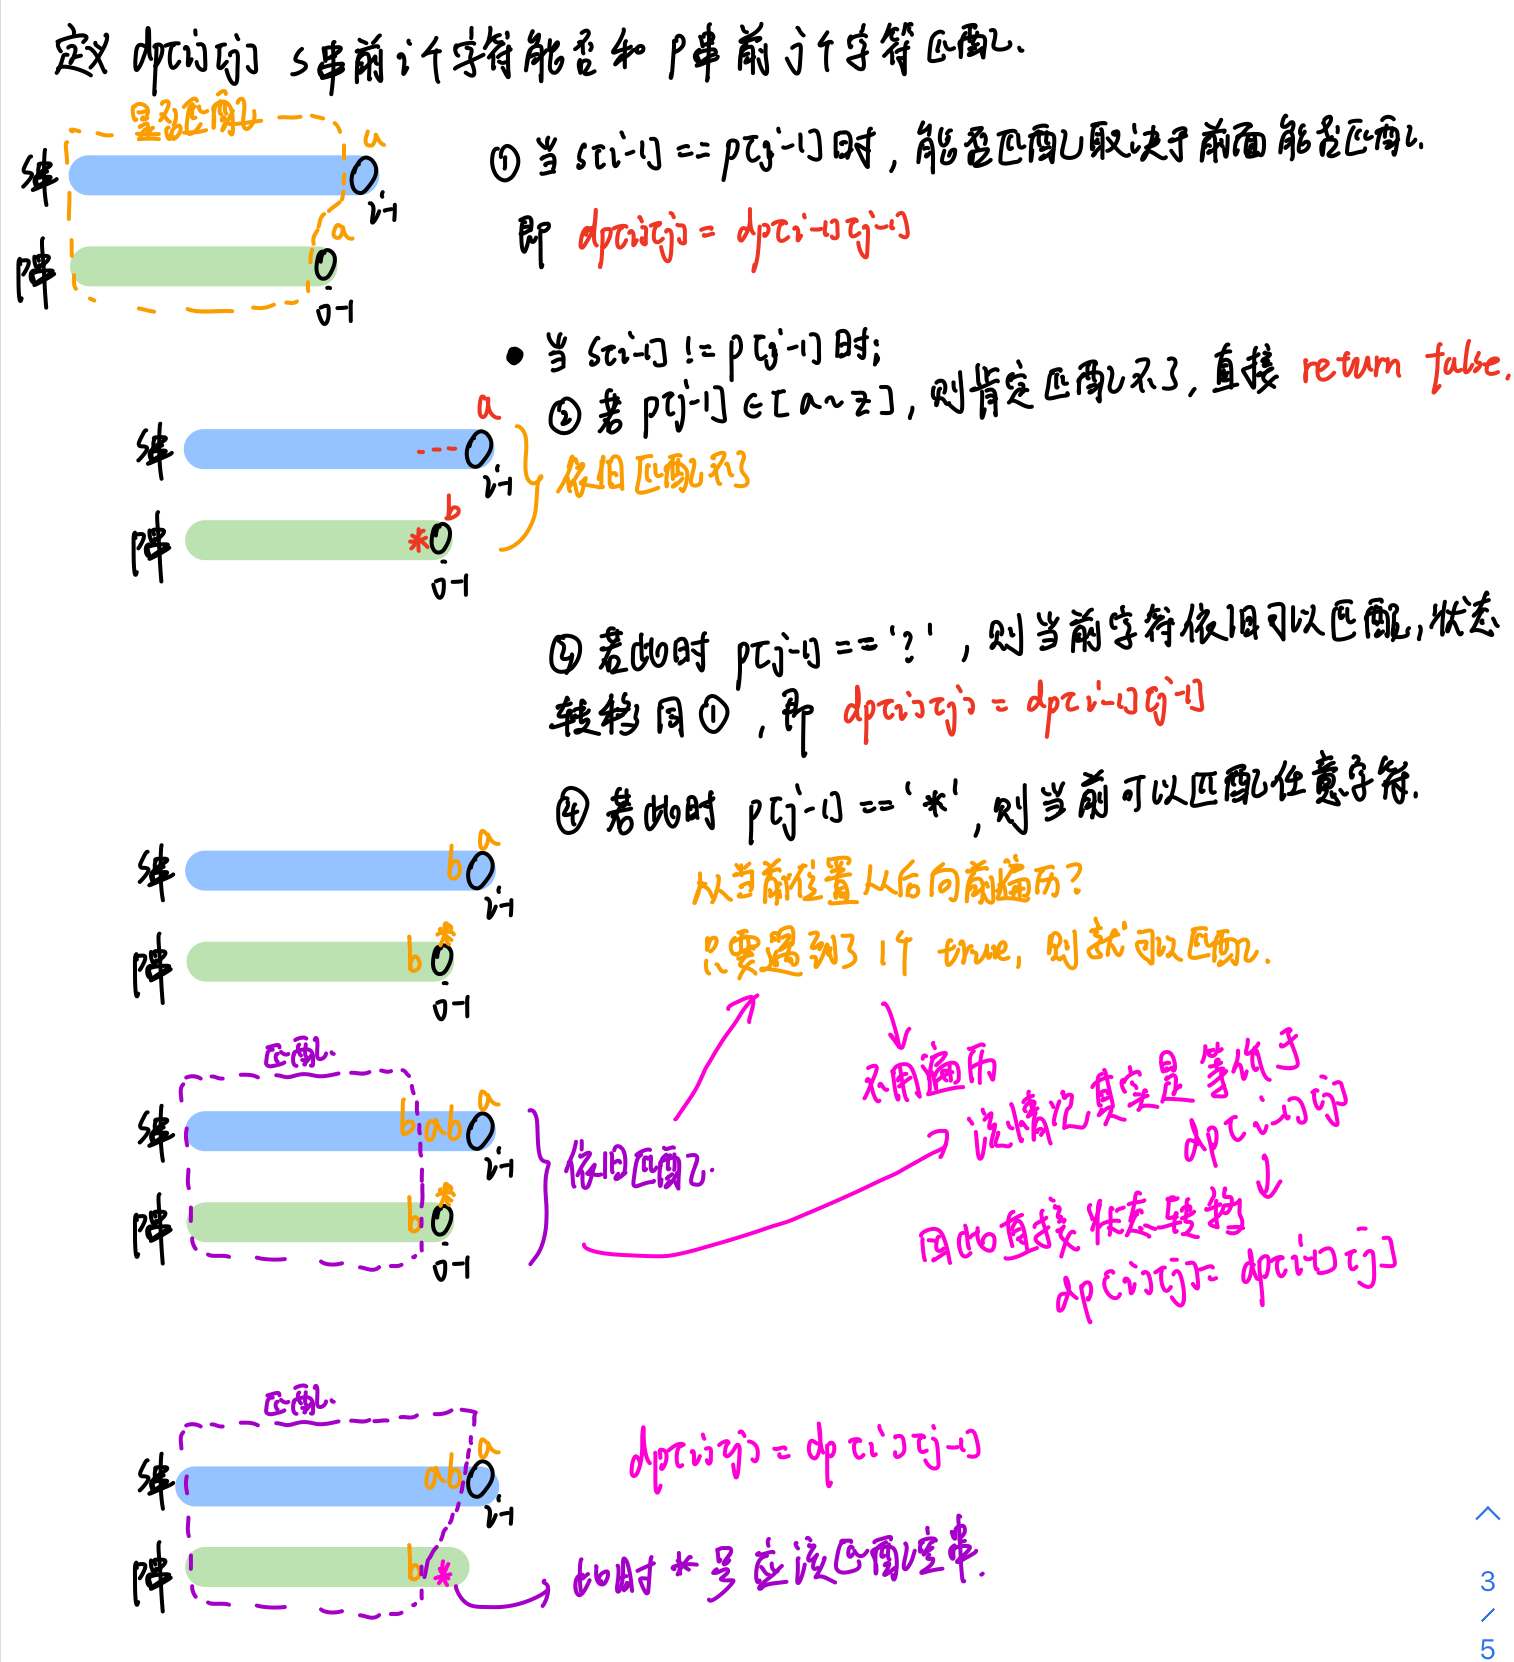 定义 dp[i][j] s串前i个字符能否和 p串前j个字符匹配.
是否匹配
a
s串
i-1
a
p串
j-1
① 当 s[i-1] == p[j-1] 时, 能否匹配取决于前面能否匹配.
即 dp[i][j] = dp[i-1][j-1]
• 当 s[i-1] != p[j-1] 时;
② 若 p[j-1] ∈ [a~z], 则肯定匹配不了, 直接 return false.
a
s串
i-1
b
p串 *
j-1
依旧匹配不了
③ 若此时 p[j-1] == '?', 则当前字符依旧可以匹配, 状态
转移同①, 即 dp[i][j] = dp[i-1][j-1]
④ 若此时 p[j-1] == '*', 则当前可以匹配任意字符.
a
s串 b
i-1
*
p串 b
j-1
从当前位置从后向前遍历?
只要遇到了1个 true, 则就可以匹配.
不用遍历
匹配.
a
s串 b ab
i-1
*
p串 b
j-1
依旧匹配.
该情况其实是等价于
dp[i-1][j]
因此直接状态转移
dp[i][j] = dp[i-1][j]
匹配.
a
s串 ab
i-1
p串 b *
dp[i][j] = dp[i][j-1]
此时 * 号应该匹配空串.
3
/
5